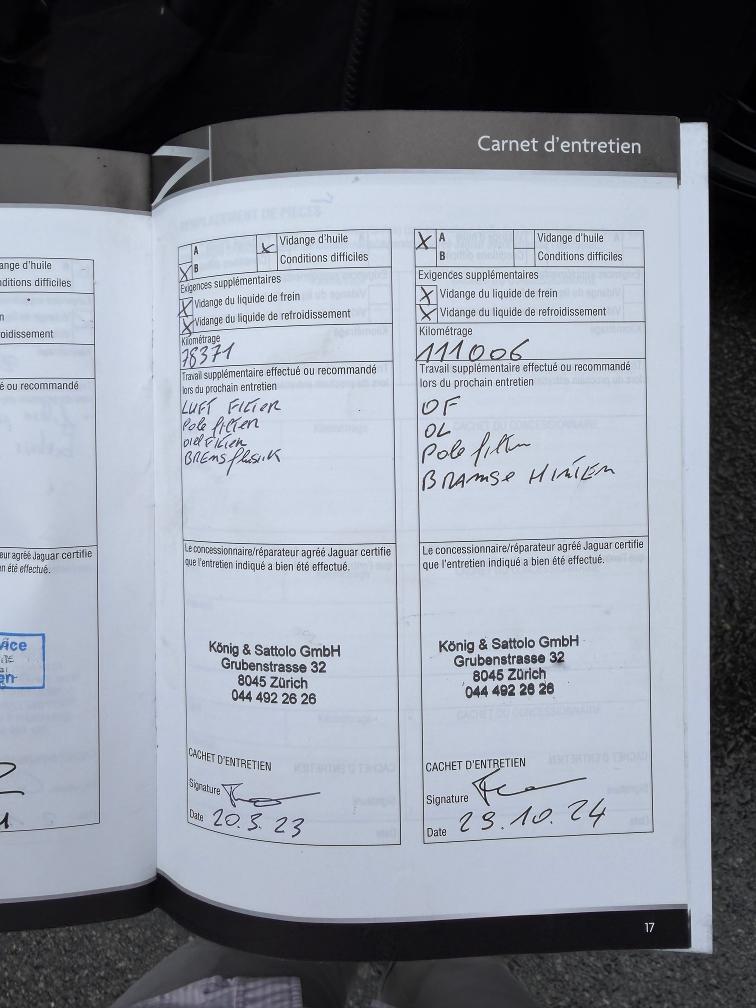 Carnet d'entretien
ange d'huile
ditions difficiles
n
roidissement
é ou recommandé
eur agréé Jaguar certifie
n été effectué.
A
B
X
X
Vidange d'huile
Conditions difficiles
Exigences supplémentaires
X Vidange du liquide de frein
X Vidange du liquide de refroidissement
Kilométrage
78371
Travail supplémentaire effectué ou recommandé
lors du prochain entretien
LUFT FILTER
Pole filter
BREMS
Le concessionnaire/réparateur agréé Jaguar certifie
que l'entretien indiqué a bien été effectué.
König & Sattolo GmbH
Grubenstrasse 32
8045 Zürich
044 492 26 26
CACHET D'ENTRETIEN
Signature
Date 20.3.23
X A
B
Vidange d'huile
Conditions difficiles
Exigences supplémentaires
X Vidange du liquide de frein
X Vidange du liquide de refroidissement
Kilométrage
111006
Travail supplémentaire effectué ou recommandé
lors du prochain entretien
OF
OL
Pole filter
BRAMSE HINTEN
Le concessionnaire/réparateur agréé Jaguar certifie
que l'entretien indiqué a bien été effectué.
König & Sattolo GmbH
Grubenstrasse 32
8045 Zürich
044 492 26 26
CACHET D'ENTRETIEN
Signature
Date 29.10.24
17